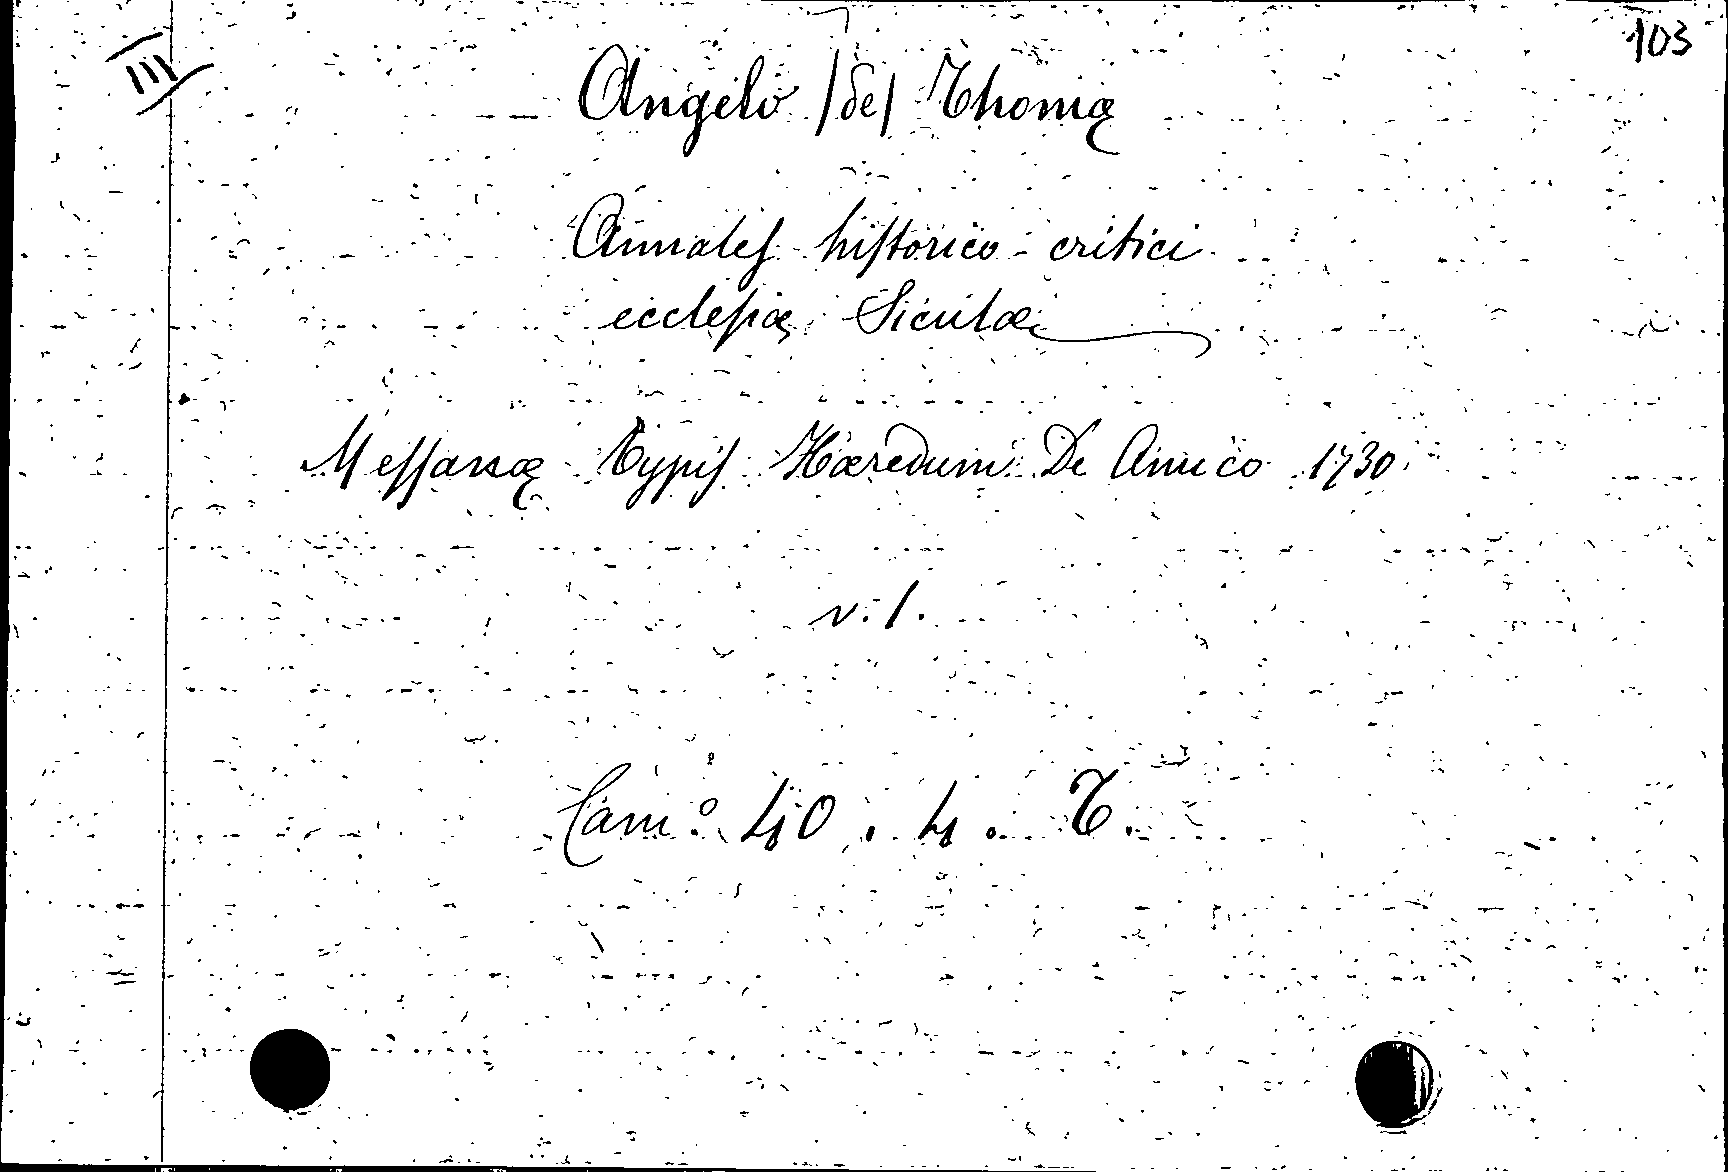 III
103
Angelo /de/ Thomæ
Annales historico-critici
ecclesiæ Siculæ
Messanæ Typis Hæredum De Amico 1730
v. 1.
Cam.° 40. 4. T.